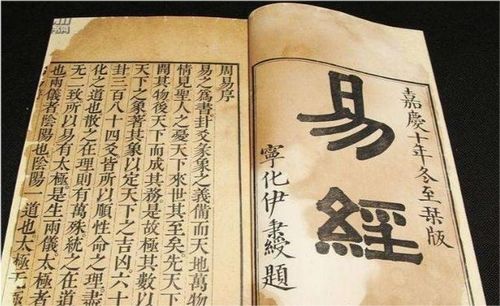 嘉慶十年冬至栞版
易經
寧化伊秉綬題
周易序
易之爲書卦爻彖象之義備而天地萬物
情見聖人之憂天下來世其至矣先天下
開其物後天下而成其務是故極其數以
天下之象著其象以定天下之吉凶六十
卦三百八十四爻皆所以順性命之理盡
化之道也散之在理則有萬殊統之在
无二致所以易有太極是生兩儀太極
也兩儀者陰陽也陰陽一道也太極无極